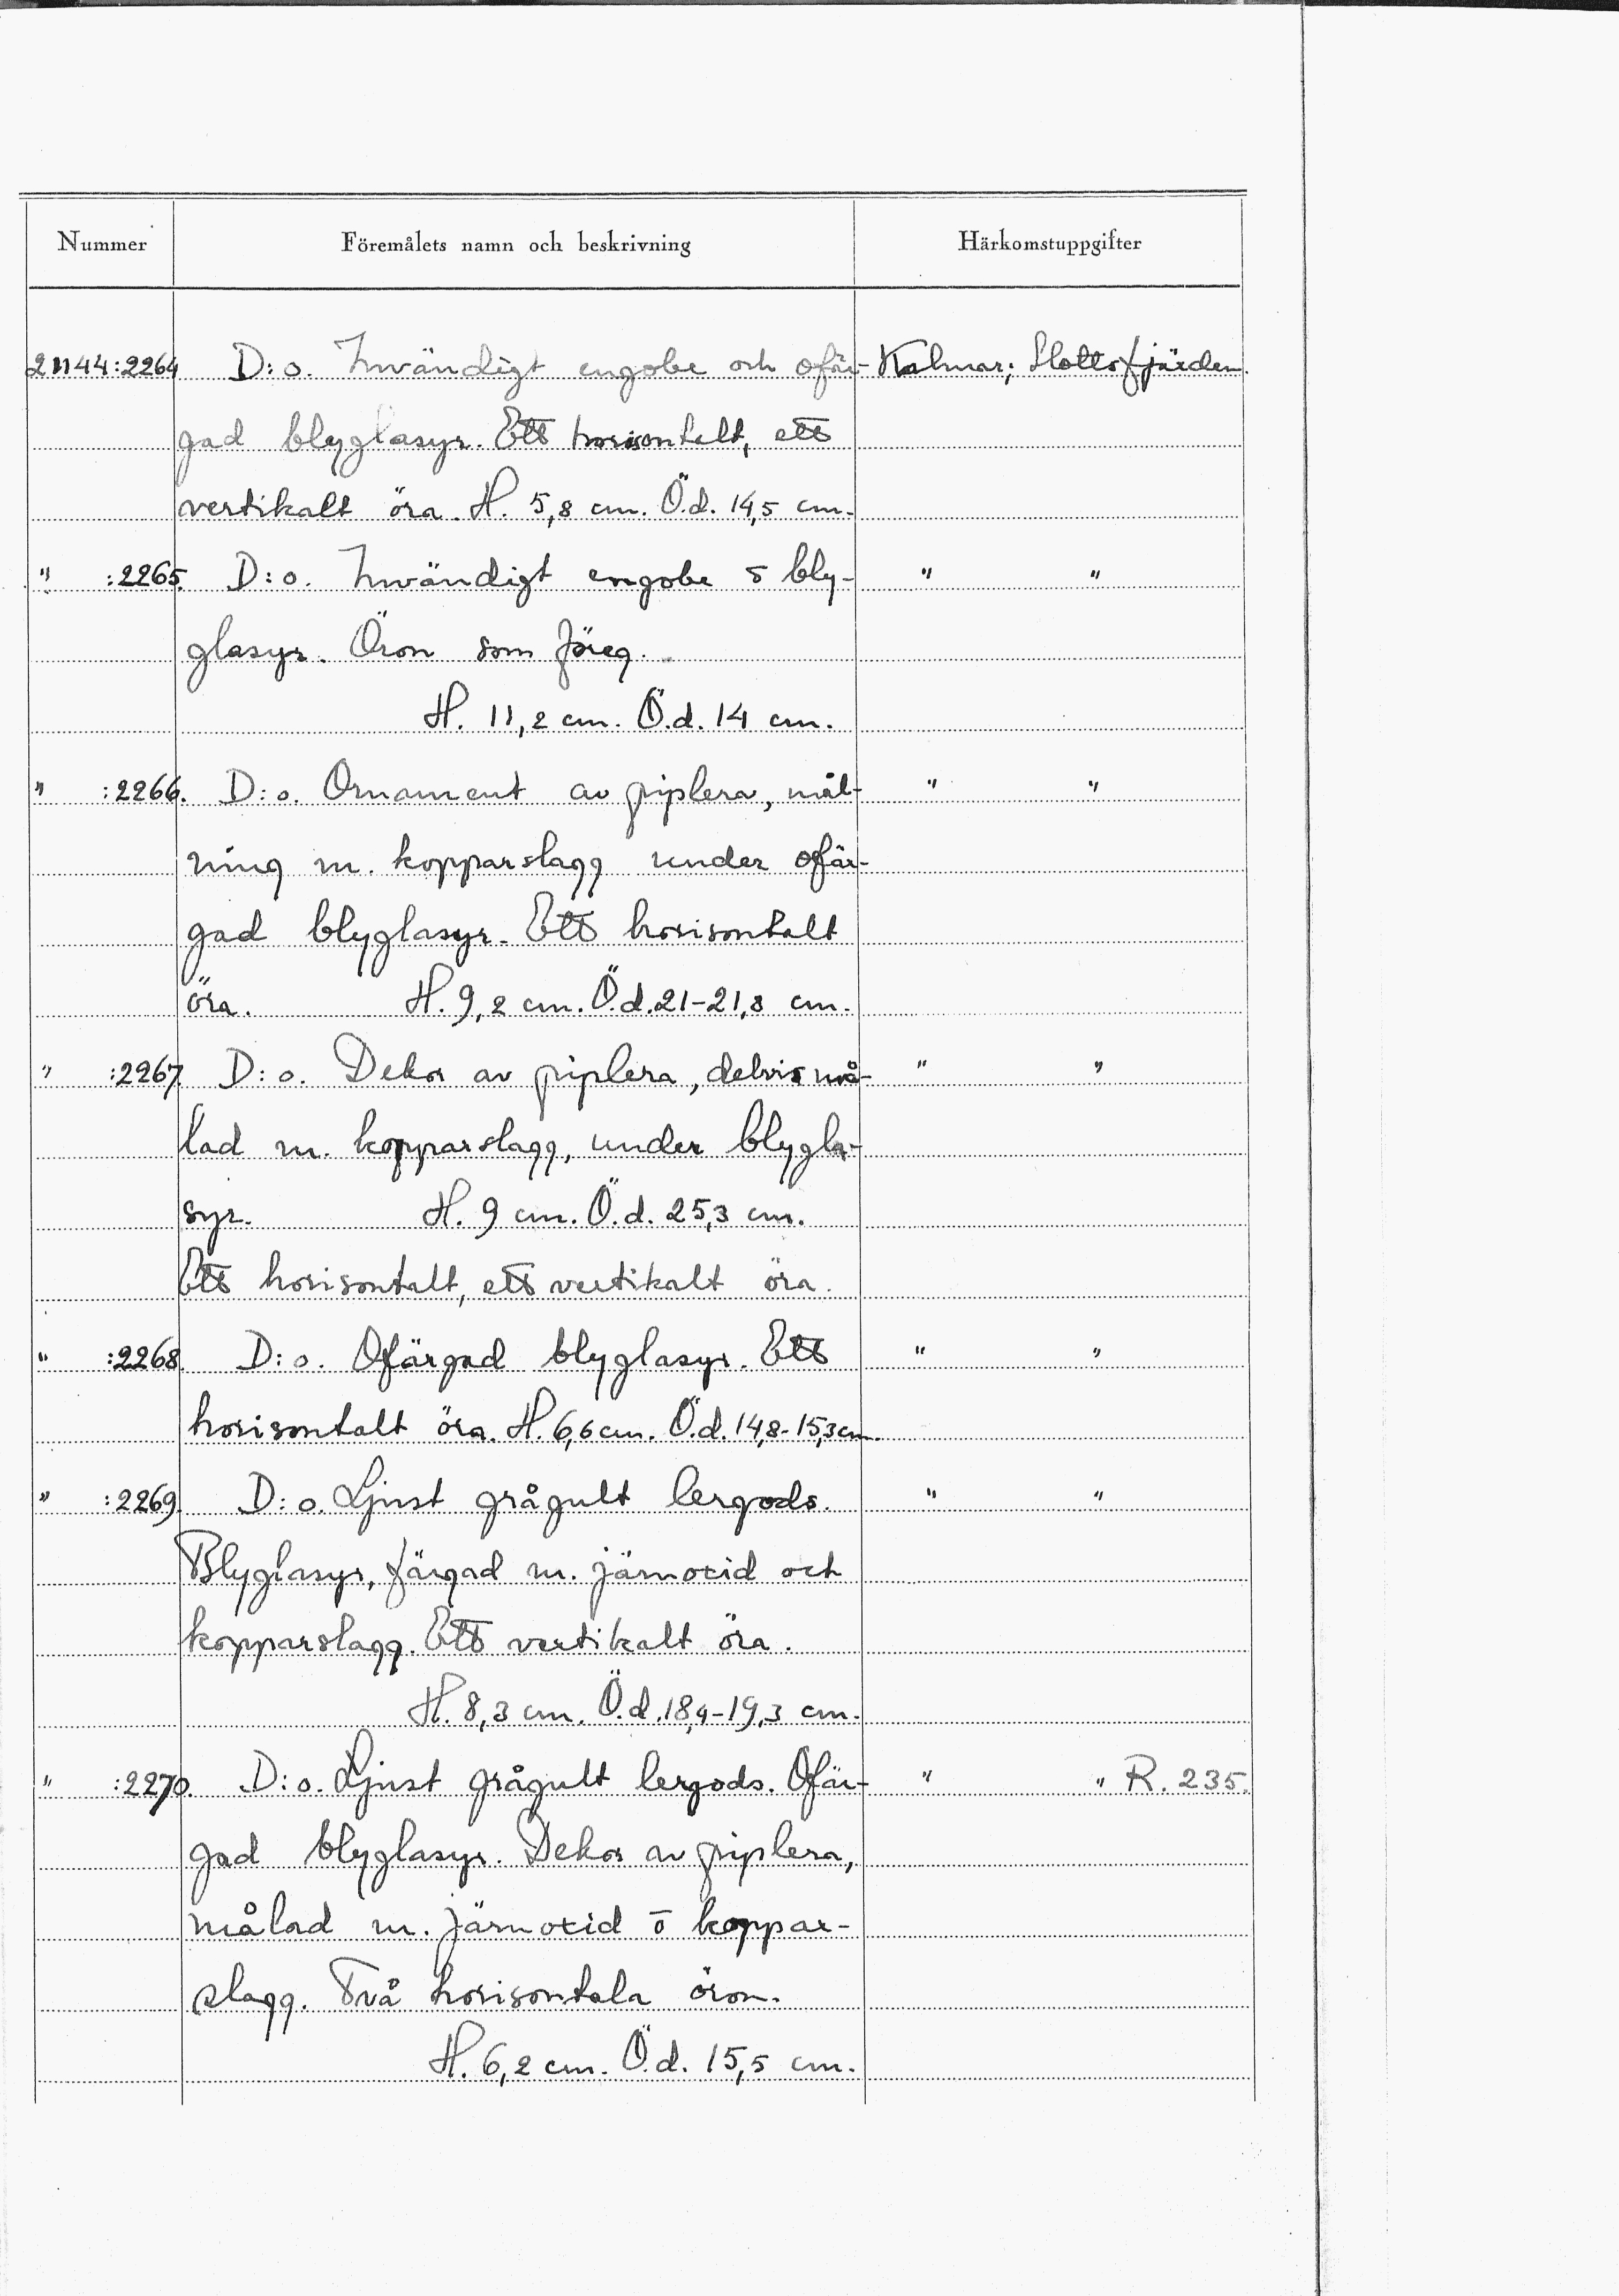 Nummer Föremålets namn och beskrivning Härkomstuppgifter
21144:2264 D:o. Invändigt engobe och ofär- Kalmar; Slottsfjärden.
gad blyglasyr. Ett horisontalt, ett
vertikalt öra. H. 5,8 cm. Ö.d. 14,5 cm.
" :2265. D:o. Invändigt engobe o bly- " "
glasyr. Öron som föreg.
H. 11,2 cm. Ö.d. 14 cm.
" :2266. D:o. Ornament av piplera, mål- " "
ning m. kopparslagg under ofär-
gad blyglasyr. Ett horisontalt
öra. H. 9,2 cm. Ö.d. 21-21,8 cm.
" :2267. D:o. Dekor av piplera, delvis må- " "
lad m. kopparslagg, under blygla-
syr. H. 9 cm. Ö.d. 25,3 cm.
Ett horisontalt, ett vertikalt öra.
" :2268. D:o. Ofärgad blyglasyr. Ett " "
horisontalt öra. H. 6,6 cm. Ö.d. 14,8-15,3 cm.
" :2269. D:o. Ljust grågult lergods. " "
Blyglasyr, färgad m. järnoxid och
kopparslagg. Ett vertikalt öra.
H. 8,3 cm. Ö.d. 18,4-19,3 cm.
" :2270. D:o. Ljust grågult lergods. Ofär- " " R. 235.
gad blyglasyr. Dekor av piplera,
målad m. järnoxid o koppar-
slagg. Två horisontala öron.
H. 6,2 cm. Ö.d. 15,5 cm.